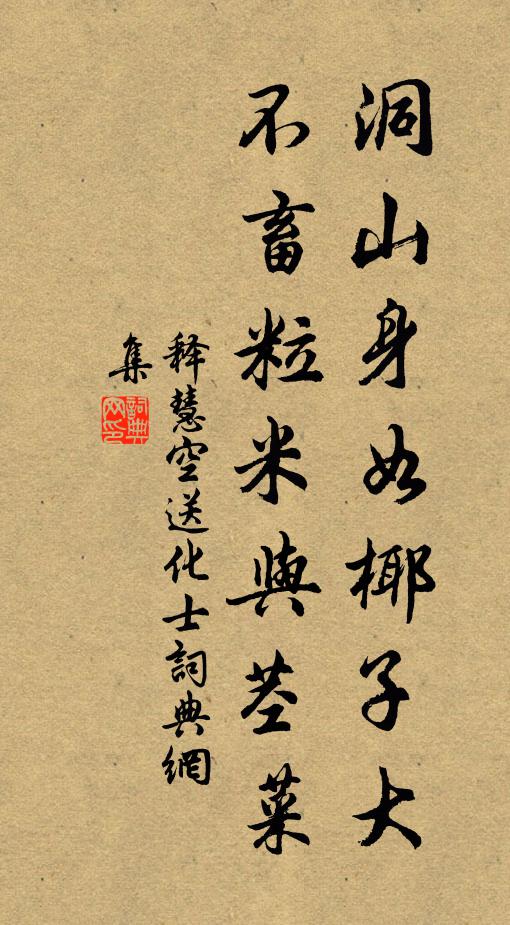 洞山身如椰子大
不畜粒米與莖菜
释慧空送化士詞典網
集
詞典
网印